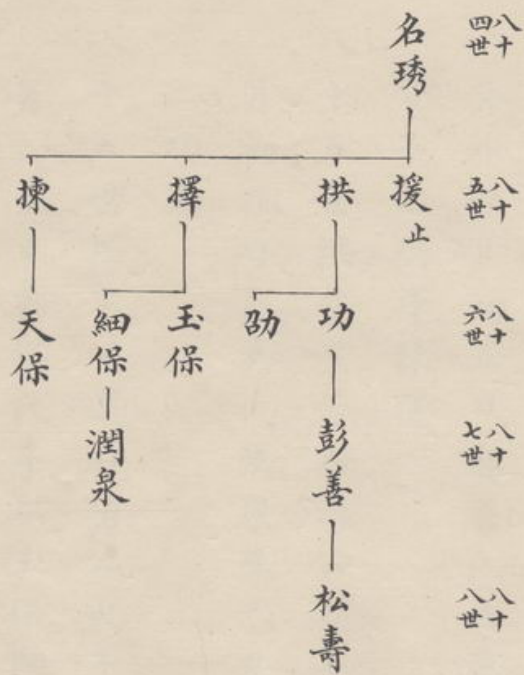 八十四世
名琇
八十五世
援止
拱
擇
揀
八十六世
功
劭
玉保
細保
天保
八十七世
彭善
潤泉
八十八世
松壽